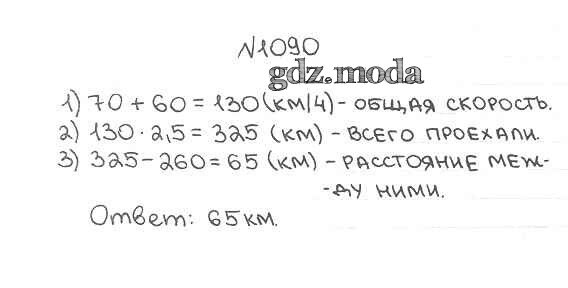 N1090
gdz.moda
1) 70 + 60 = 130 (км/ч) - общая скорость.
2) 130 · 2,5 = 325 (км) - всего проехали.
3) 325 - 260 = 65 (км) - расстояние меж-
-ду ними.
Ответ: 65 км.